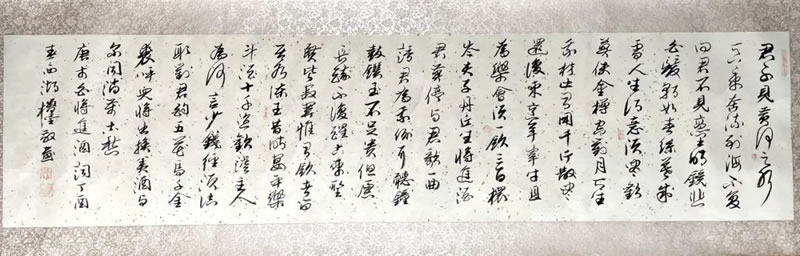 君不見黃河之水
天上來奔流到海不復
回君不見高堂明鏡悲
白髮朝如青絲暮成
雪人生得意須盡歡
莫使金樽空對月天生
我材必有用千金散盡
還復來烹羊宰牛且
為樂會須一飲三百杯
岑夫子丹丘生將進酒
君莫停與君歌一曲
請君為我側耳聽鐘
鼓饌玉不足貴但願
長醉不復醒古來聖
賢皆寂寞惟有飲者留
其名陳王昔時宴平樂
斗酒十千恣歡謔主人
為何言少錢徑須沽
取對君酌五花馬千金
裘呼兒將出換美酒與
爾同消萬古愁
唐李白將進酒詞丁酉
春西湖